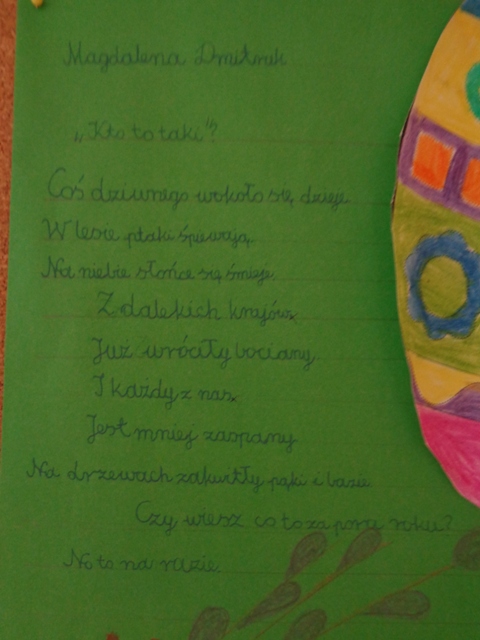 Magdalena Dmitruk
„Kto to taki"?
Coś dziwnego wokoło się dzieje.
W lesie ptaki śpiewają.
Na niebie słońce się śmieje.
Z dalekich knyjów
Już wróciły bociany.
I każdy z nas
Jest mniej zaspany
Na drzewach zakwitły pąki i bazie.
Czy wiesz co to za porę roku?
No to na razie.